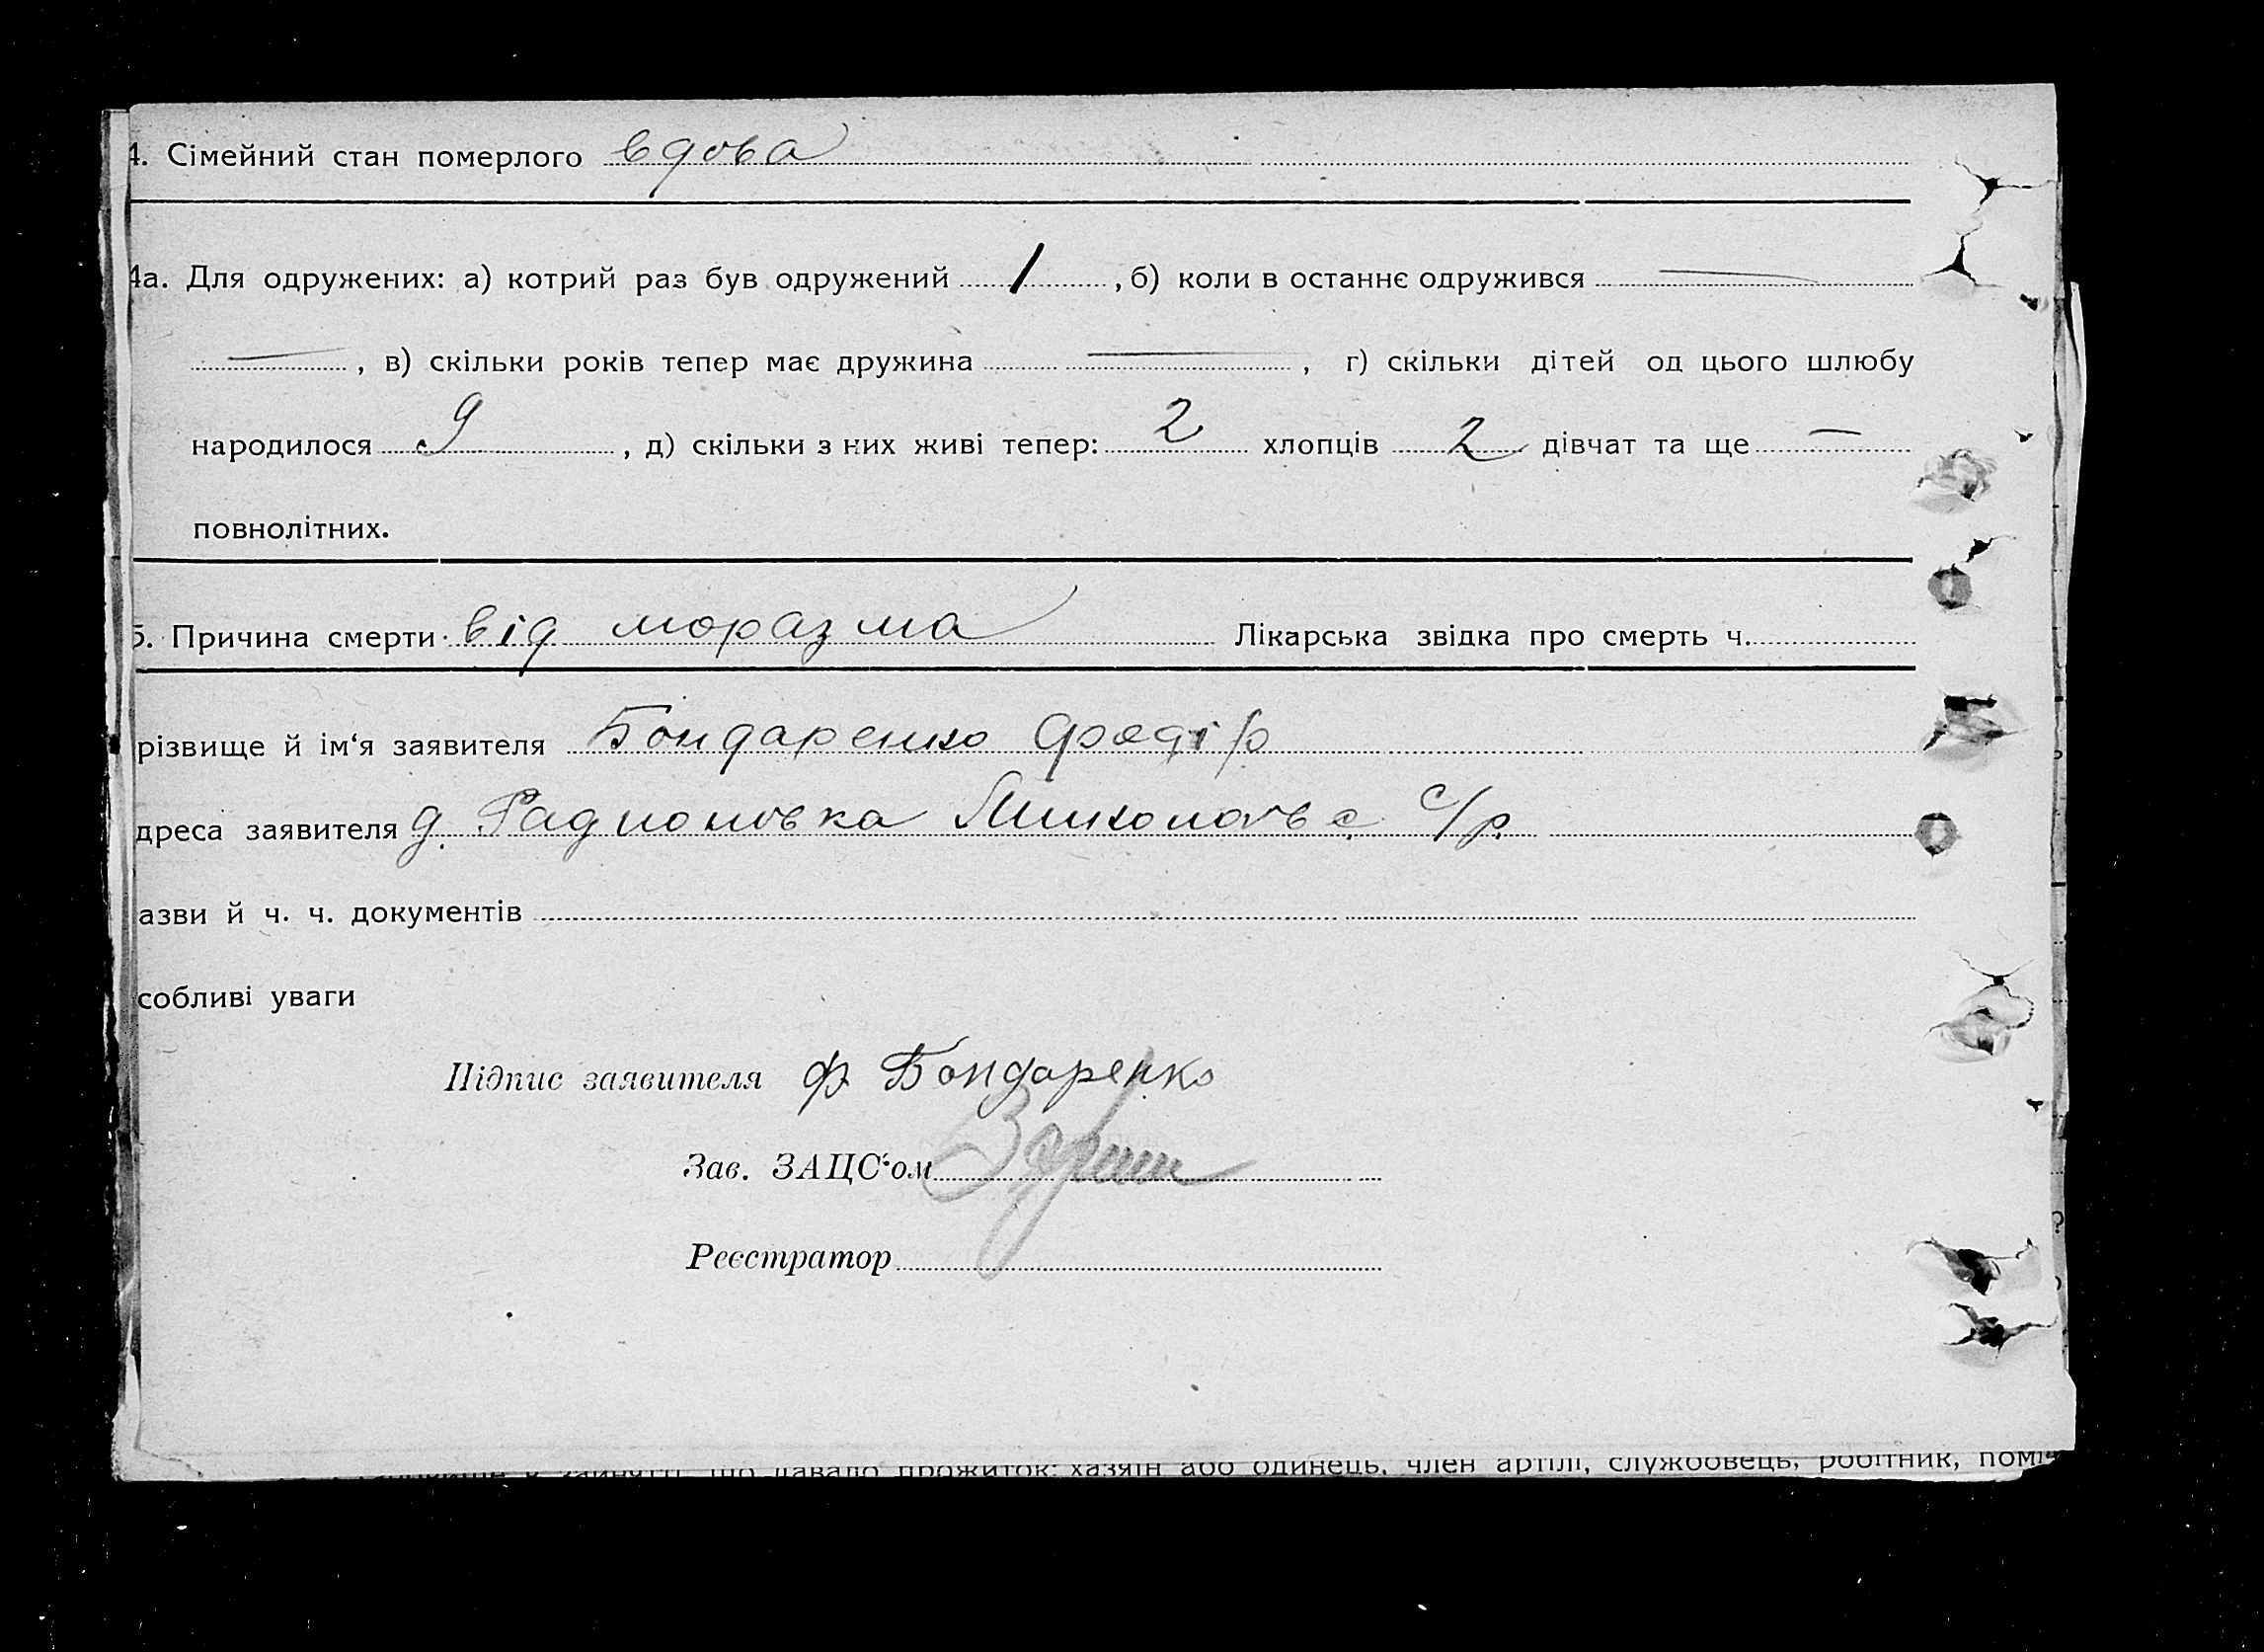 4. Сімейний стан померлого вдова
4а. Для одружених: а) котрий раз був одружений 1, б) коли в останнє одружився —
—, в) скільки років тепер має дружина —, г) скільки дітей од цього шлюбу
народилося 9, д) скільки з них живі тепер: 2 хлопців 2 дівчат та ще —
повнолітних.
5. Причина смерти від моразма Лікарська звідка про смерть ч.
різвище й ім‘я заявителя Бондаренко Федір
дреса заявителя д. Радионовка с/р
азви й ч. ч. документів
собливі уваги
Підпис заявителя Ф Бондаренко
Зав. ЗАЦС‘ом
Реєстратор
що давало прожиток: хазяїн або одинець, член артілі, службовець, робітник, помі